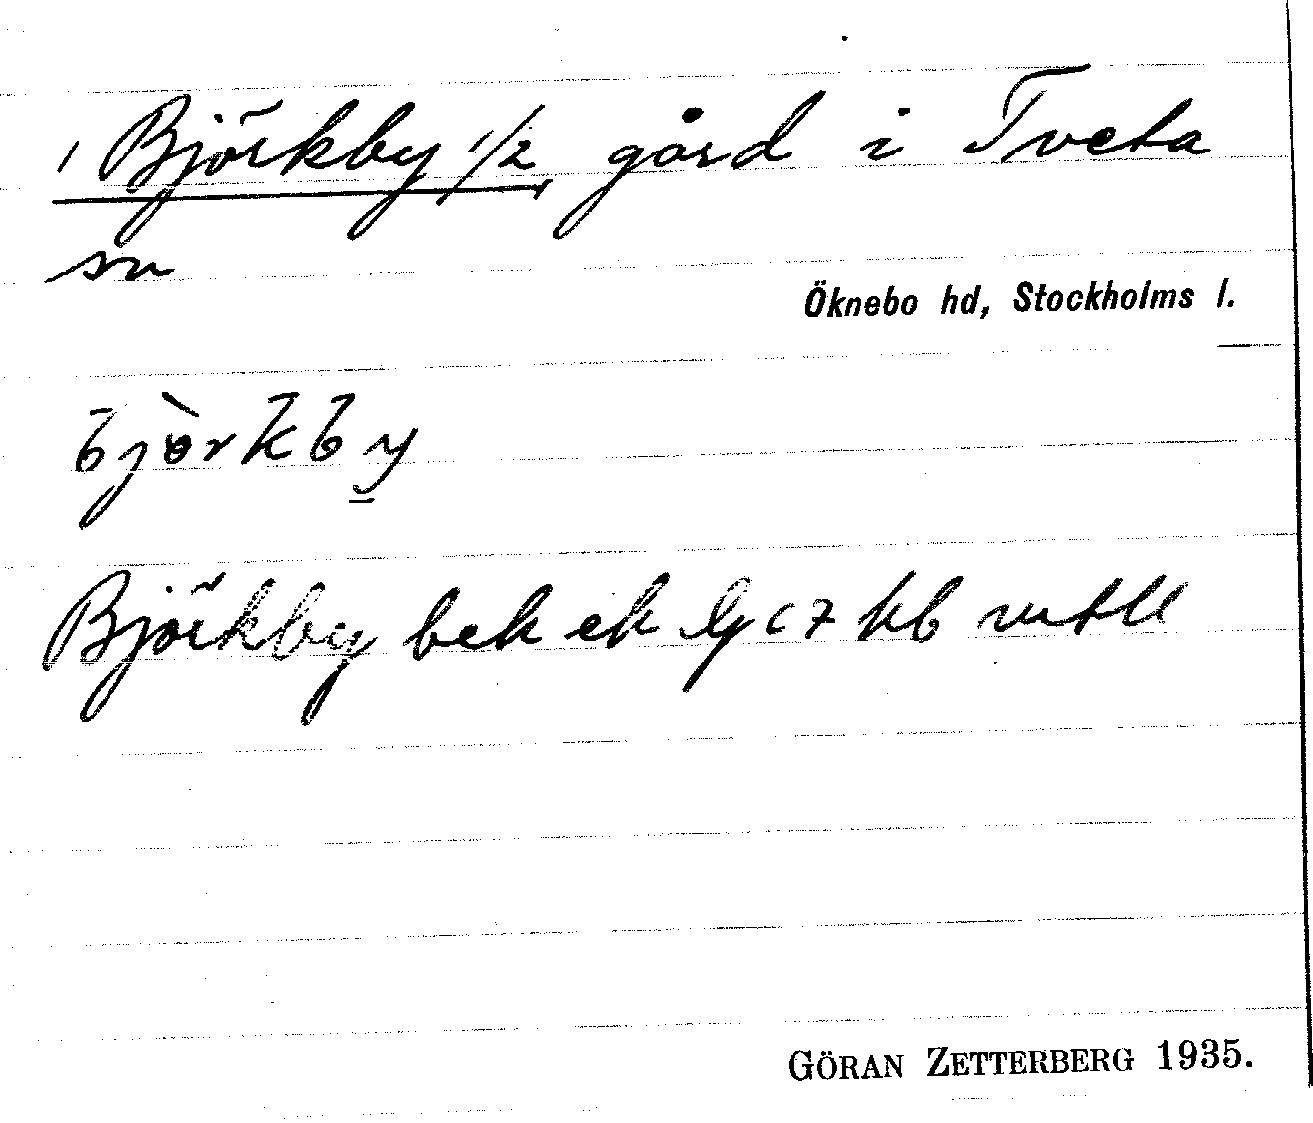 1 Björkby 1/2, gård i Tveta
sn
Öknebo hd, Stockholms l.
bjòrkby
Björkby bek ek lg c 7 kb
GÖRAN ZETTERBERG 1935.